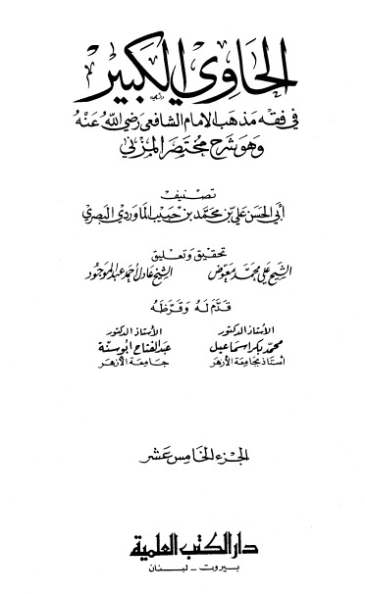 الحاوي الكبير
في فقه مذهب الإمام الشافعي رضي الله عنه
وهو شرح مختصر المزني
تصنيف
أبي الحسن علي بن محمد بن حبيب الماوردي البصري
تحقيق وتعليق
الشيخ علي محمد معوض الشيخ عادل أحمد عبد الموجود
قدم له وقرظه
الأستاذ الدكتور الأستاذ الدكتور
محمد بكر اسماعيل عبد الفتاح أبو سنة
أستاذ بجامعة الأزهر جامعة الأزهر
الجزء الخامس عشر
دار الكتب العلمية
بيروت - لبنان